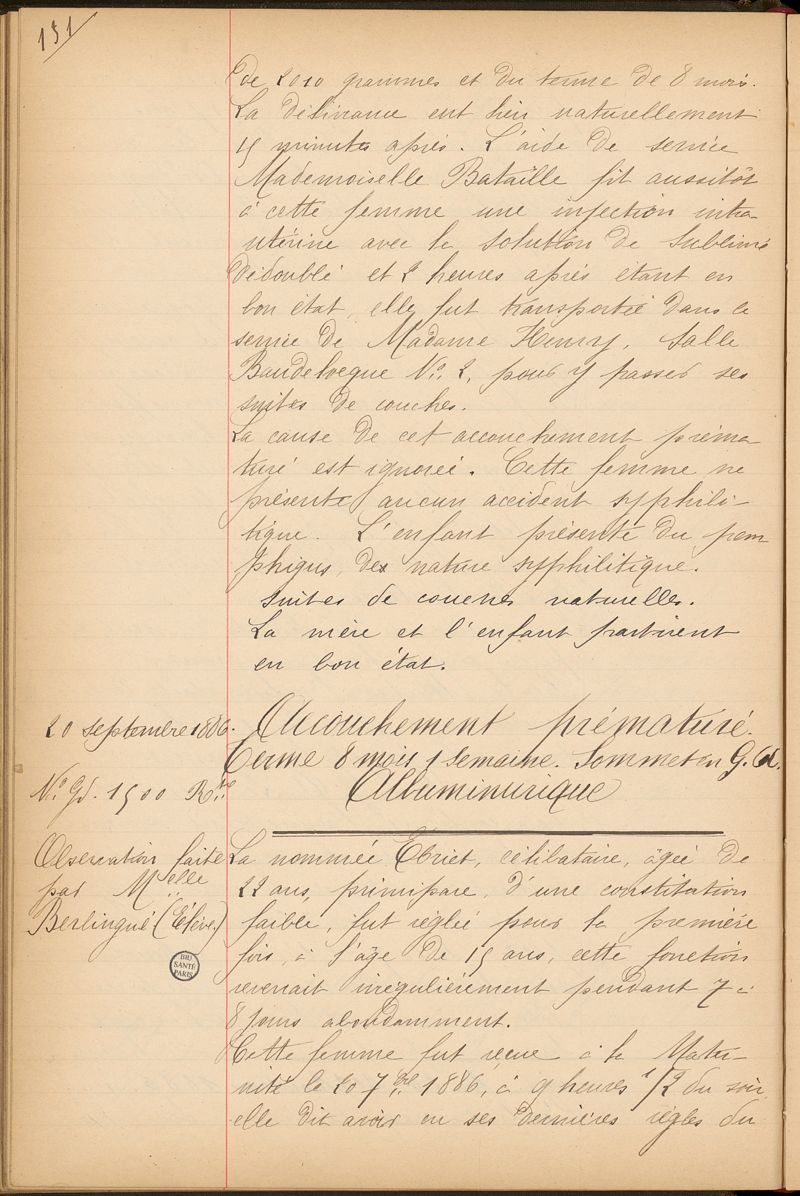 151
de 2010 grammes et du terme de 8 mois.
La délivrance eut lieu naturellement
15 minutes après. L'aide de service
Mademoiselle Bataille fit aussitôt
à cette femme une injection intra-
utérine avec la solution de sublimé
dédoublé et 2 heures après étant en
bon état, elle fut transportée dans le
service de Madame Henry, Salle
Baudelocque No. 2, pour y passer ses
suites de couches.
La cause de cet accouchement préma-
turé est ignorée. Cette femme ne
présente aucun accident syphili-
tique. L'enfant présente du pem
phigus, de nature syphilitique.
Suites de couches naturelles.
La mère et l'enfant partirent
en bon état.
20 septembre 1886.
Accouchement prématuré.
Terme 8 mois 1 semaine. Sommet en G. A.
No. Gd. 1500 Rtre
Albuminurique
Observation faite
par Melle
Berlingué (Élève.)
La nommée Ebriet, célibataire, âgée de
22 ans, primipare, d'une constitution
faible, fut réglée pour la première
fois, à l'âge de 15 ans, cette fonction
revenait irrégulièrement pendant 7 à
8 jours abondamment.
Cette femme fut reçue à la Mater-
nité le 20 7bre 1886, à 9 heures 1/2 du soir,
elle dit avoir eu ses dernières règles du
BIU
SANTÉ
PARIS